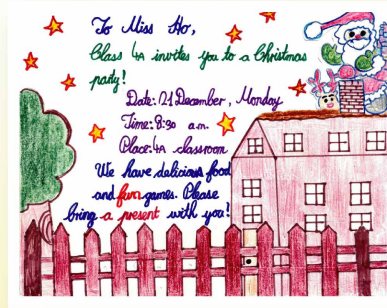 To Miss Ho,
Class 4A invites you to a Christmas
party!
Date: 21 December, Monday
Time: 8:30 a.m.
Place: 4A classroom
We have delicious food
and fun games. Please
bring a present with you!